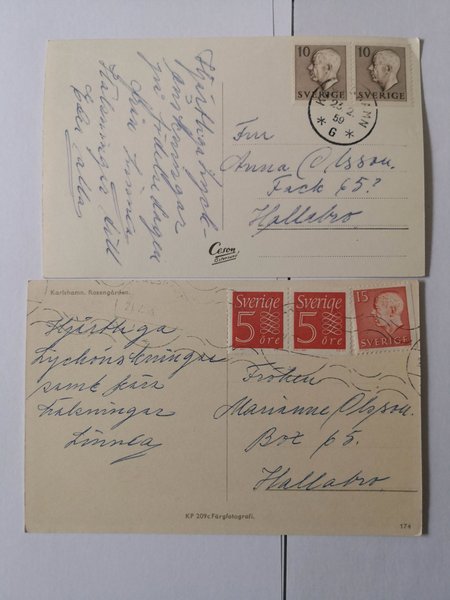 10
10
SVERIGE
SVERIGE
59
* G *
Hjärtliga Lyck-
önskningar
på födelsedagen
från Linnea
Hälsningar till
Eder alla
Fru
Anna Olsson.
Fack 65?
Hallabro.
Ceson
Karlshamn. Rosengården.
Sverige
5
öre
Sverige
5
öre
15
SVERIGE
Hjärtliga
Lyckönskningar
samt kära
hälsningar
Linnea
Fröken
Marianne Olsson.
Box 65.
Hallabro
KP 209c Färgfotografi.
174